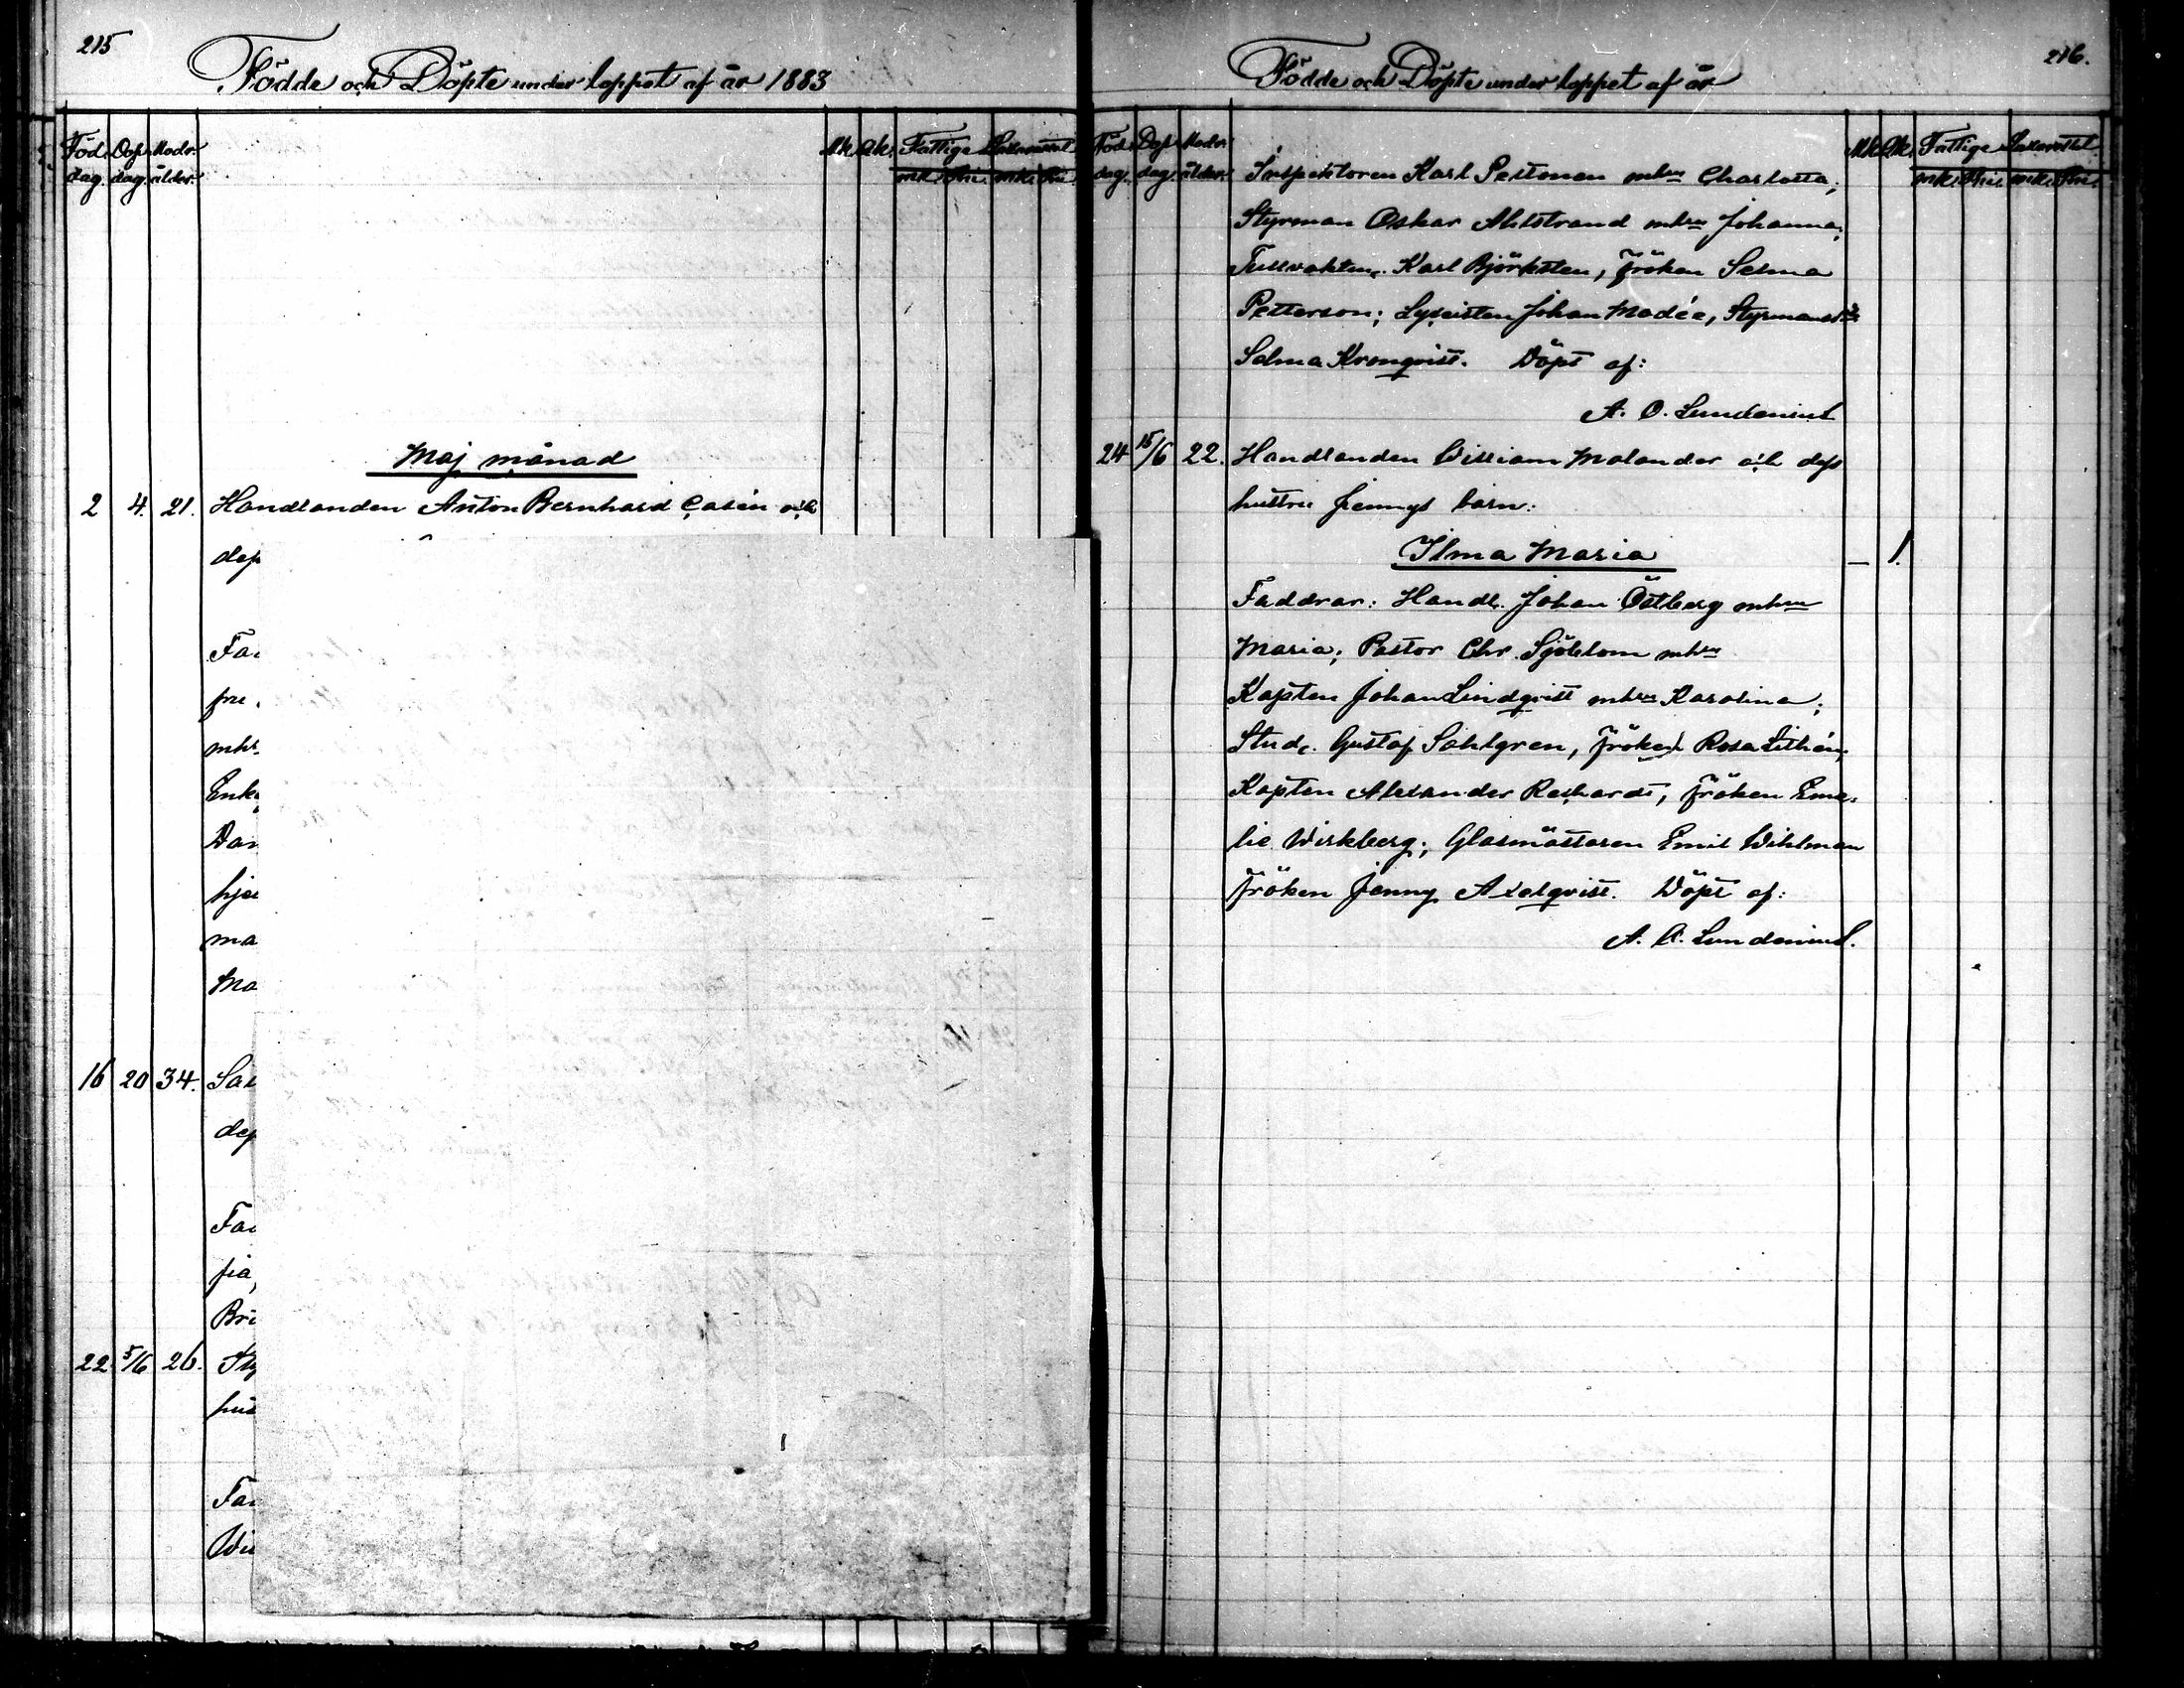 215
Födde och Döpte under loppet af år 1883
Föd. dag. Dop dag. Modr. ålder. Mk. Qk. Fattige mk. Pni. mk. Pni.
Maj månad
2 4. 21. Handlanden Anton Bernhard Casén och
dess
Fad
fru
mhr
Enke
Dan
hjel
ma
Ma
16 20 34.
dess
Fad
fia,
Bri
22. 5/6 26. Sty
hus
Fad
Wil
216.
Födde och Döpte under loppet af år
Föd. dag. Dop dag. Modr. ålder. Mk. Qk. Fattige mk. Pni. mk. Pni.
Inspektoren Karl Pettonen mhru Charlotta;
Styrman Oskar Ahlstrand mhru Johanna;
Tullvakten. Karl Björksten, Fröken Selma
Petterson; Lyseisten Johan Madée, Styrmansd:r
Selma Kronqvist. Döpt af:
A. O. Sundenius
24 15/6 22. Handlanden William Molander och dess
hustru Jennys barn:
Ilma Maria — 1.
Faddrar: Handl. Johan Östberg mhru
Maria; Pastor Chr. Sjöblom mhru
Kapten Johan Lindqvist mhru Karolina;
Stud. Gustaf Sahlgren, Fröken Rosa Lithén;
Kapten Alexander Reshardt, Fröken Eme-
lie Wirkberg; Glasmästaren Emil Wihlman
Fröken Jenny Axelqvist. Döpt af:
A. O. Sundenius.